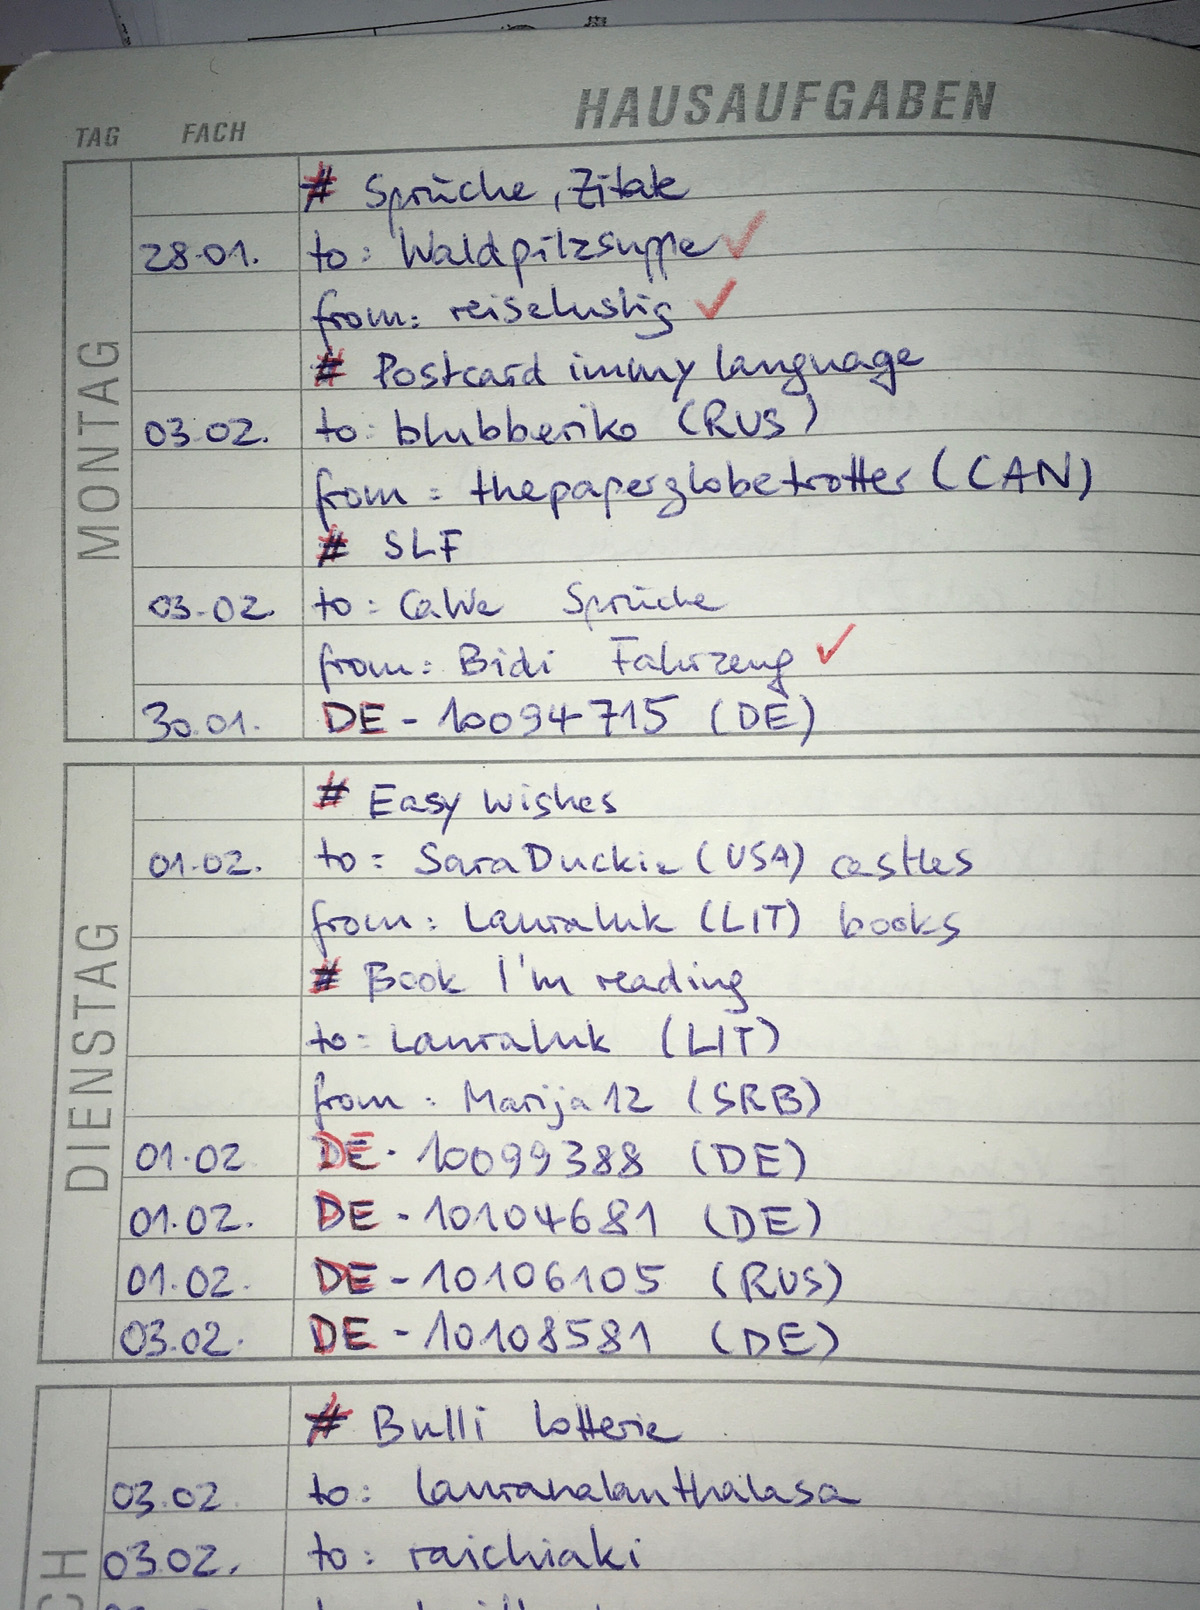 TAG FACH HAUSAUFGABEN
MONTAG
# Sprüche, Zitate
28.01. to: Waldpilzsuppe ✓
from: reiselustig ✓
# Postcard in my language
03.02. to: blubberiko (RUS)
from: thepaperglobetrotter (CAN)
# SLF
03.02. to: CaWe Sprüche
from: Bidi Fahrzeug ✓
30.01. DE-10094715 (DE)
DIENSTAG
# Easy wishes
01.02. to: SaraDuckie (USA) castles
from: Lauraluk (LIT) books
# Book I'm reading
to: Lauraluk (LIT)
from: Marija12 (SRB)
01.02 DE-10099388 (DE)
01.02. DE-10104681 (DE)
01.02. DE-10106105 (RUS)
03.02. DE-10108581 (DE)
CH
# Bulli Lotterie
03.02 to: lauranalanthalasa
03.02. to: raichiaki
to: